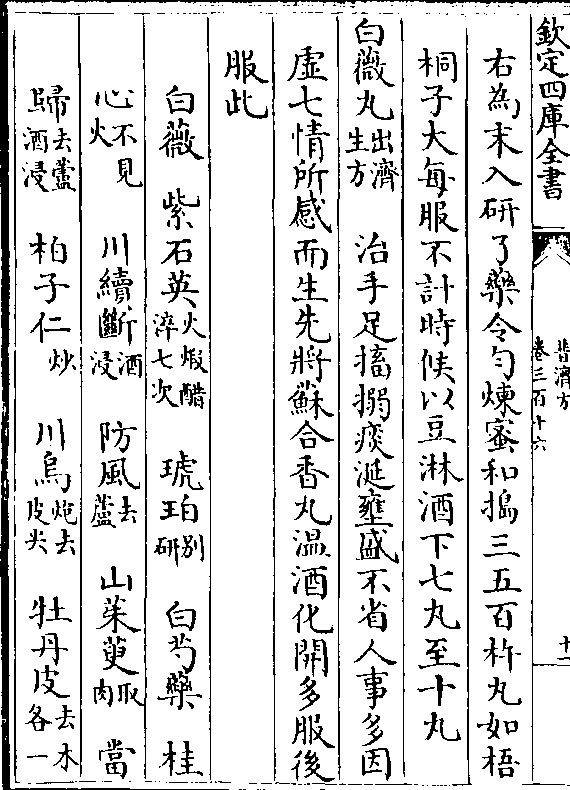 欽定四庫全書
普濟方
卷三百十六
十二
右為末入研了藥令勻煉蜜和搗三五百杵丸如梧
桐子大每服不計時候以豆淋酒下七丸至十丸
白薇丸出濟生方 治手足搐搦痰涎壅盛不省人事多因
虛七情所感而生先將蘇合香丸溫酒化開多服後
服此
白薇 紫石英火煅醋淬七次 琥珀別研 白芍藥 桂
心不見火 川續斷酒浸 防風去蘆 山茱萸取肉 當
歸去蘆酒浸 柏子仁炒 川烏炮去皮尖 牡丹皮去木各一